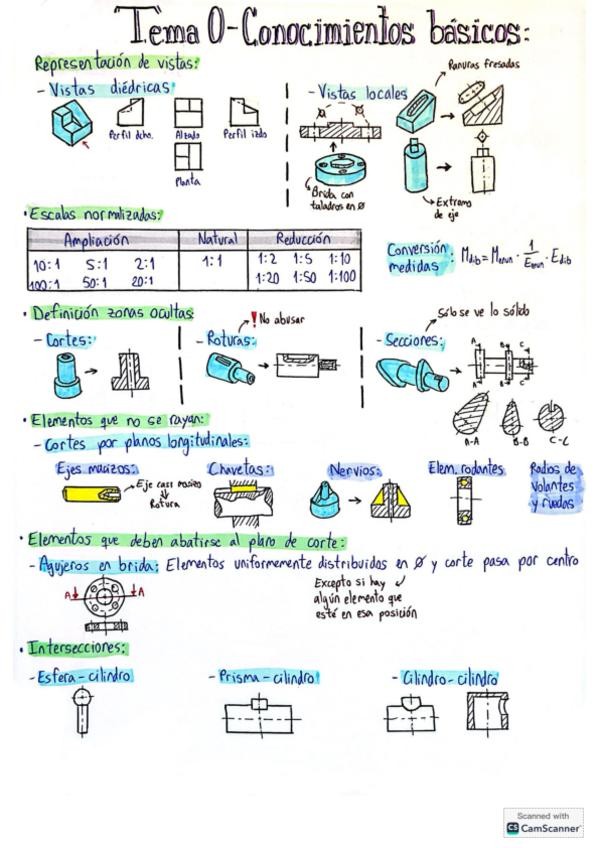 Tema 0-Conocimientos básicos:
Representación de vistas:
- Vistas diédricas:
Perfil dcho.
Alzado
Perfil izdo
Planta
- Vistas locales
Ranuras fresadas
Brida con
taladros en Ø
Extremo
de eje
• Escalas normalizadas:
Ampliación
Natural
Reducción
10:1 5:1 2:1
1:1
1:2 1:5 1:10
100:1 50:1 20:1
1:20 1:50 1:100
Conversión
medidas:
• Definición zonas ocultas:
- Cortes:
- Roturas:
! No abusar
- Secciones:
Sólo se ve lo sólido
A B C
A B C
A-A B-B C-C
• Elementos que no se rayan:
- Cortes por planos longitudinales:
Ejes macizos:
Eje casi macizo
Rotura
Chavetas:
Nervios:
Elem. rodantes
Radios de
volantes
y ruedas
• Elementos que deben abatirse al plano de corte:
- Agujeros en brida: Elementos uniformemente distribuidos en Ø y corte pasa por centro
A A
Excepto si hay
algún elemento que
esté en esa posición
• Intersecciones:
- Esfera-cilindro
- Prisma-cilindro
- Cilindro-cilindro
Scanned with
CS CamScanner